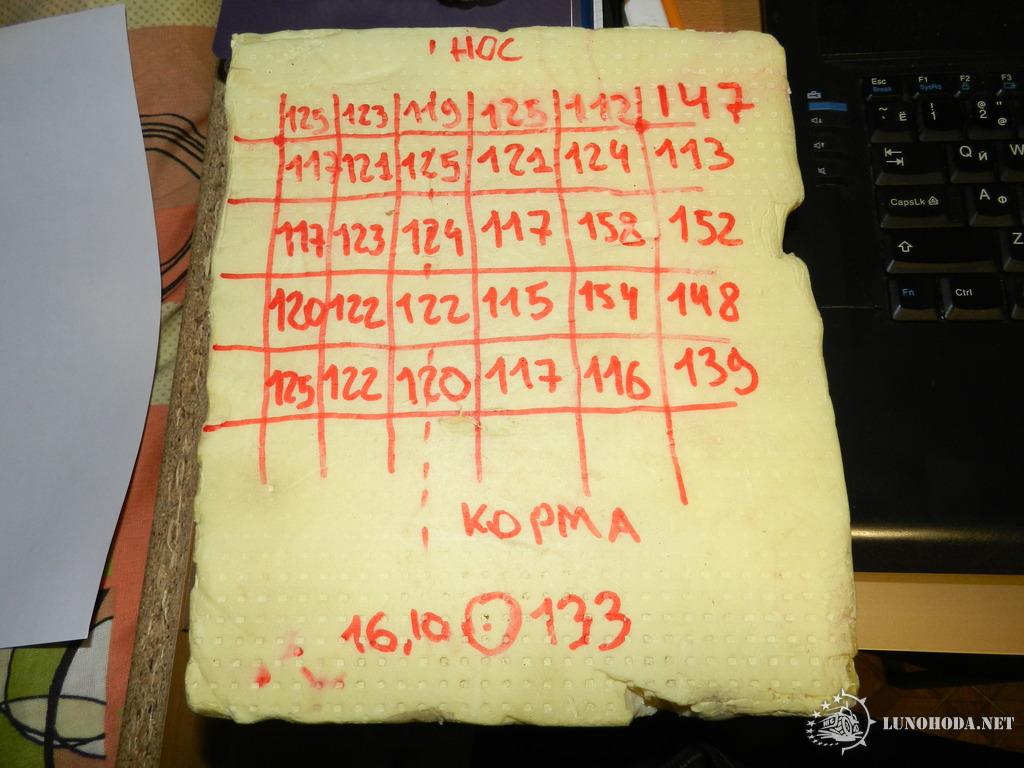 НОС
125 123 119 125 113 147
117 121 125 121 124 113
117 123 124 117 158 152
120 122 122 115 154 148
125 122 120 117 116 139
КОРМА
16,10 133
Esc F1 F2 F3
Break SysRq
~ Ё ! 1 @ 2 "
Q Й W
CapsLk A Ф
Z
Fn Ctrl
LUNOHODA.NET